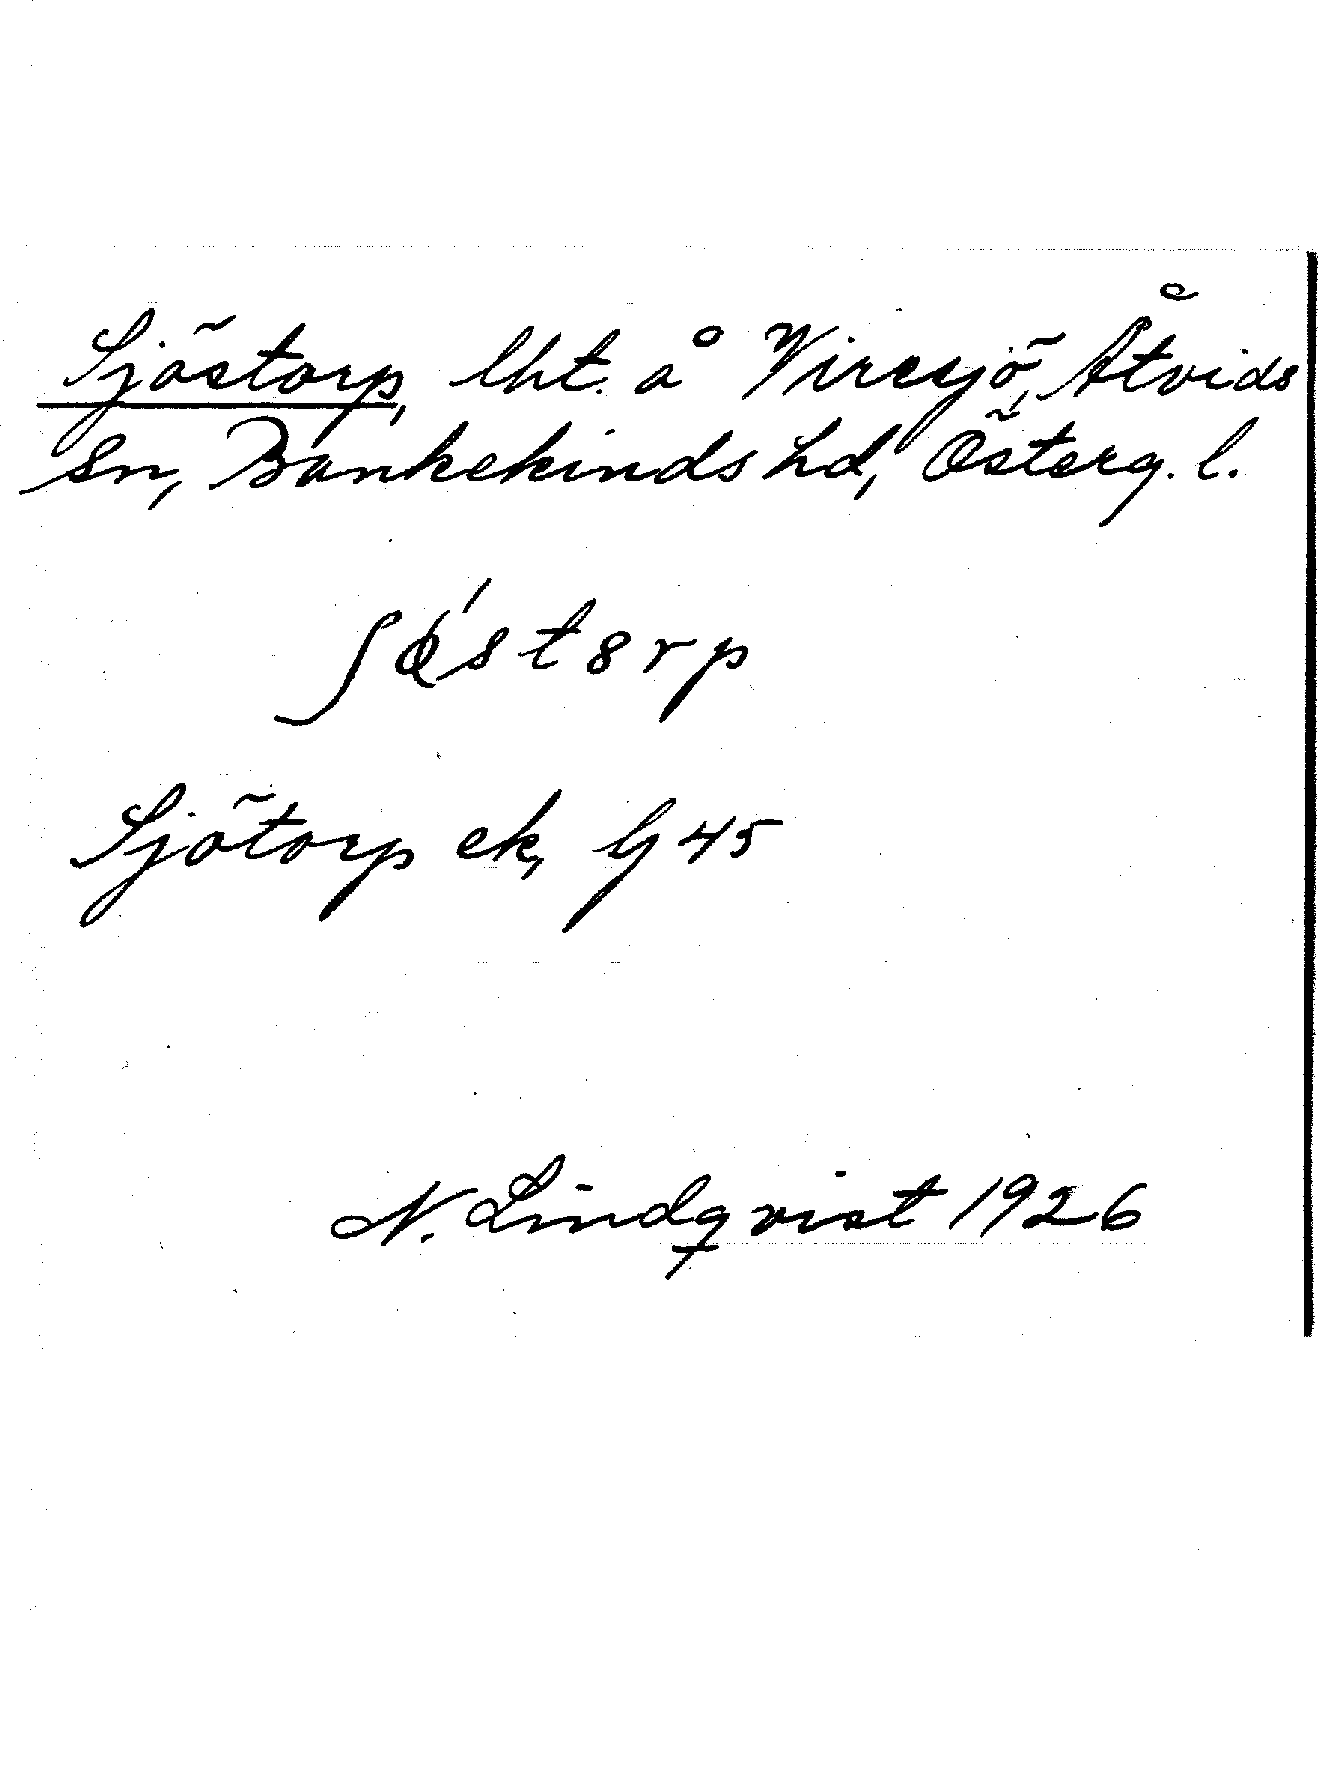 Sjöstorp, lht. å Viresjö, Åtvids
sn, Bankekinds hd, Österg. l.
Sjötorp ek, bl 45
N. Lindqvist 1926